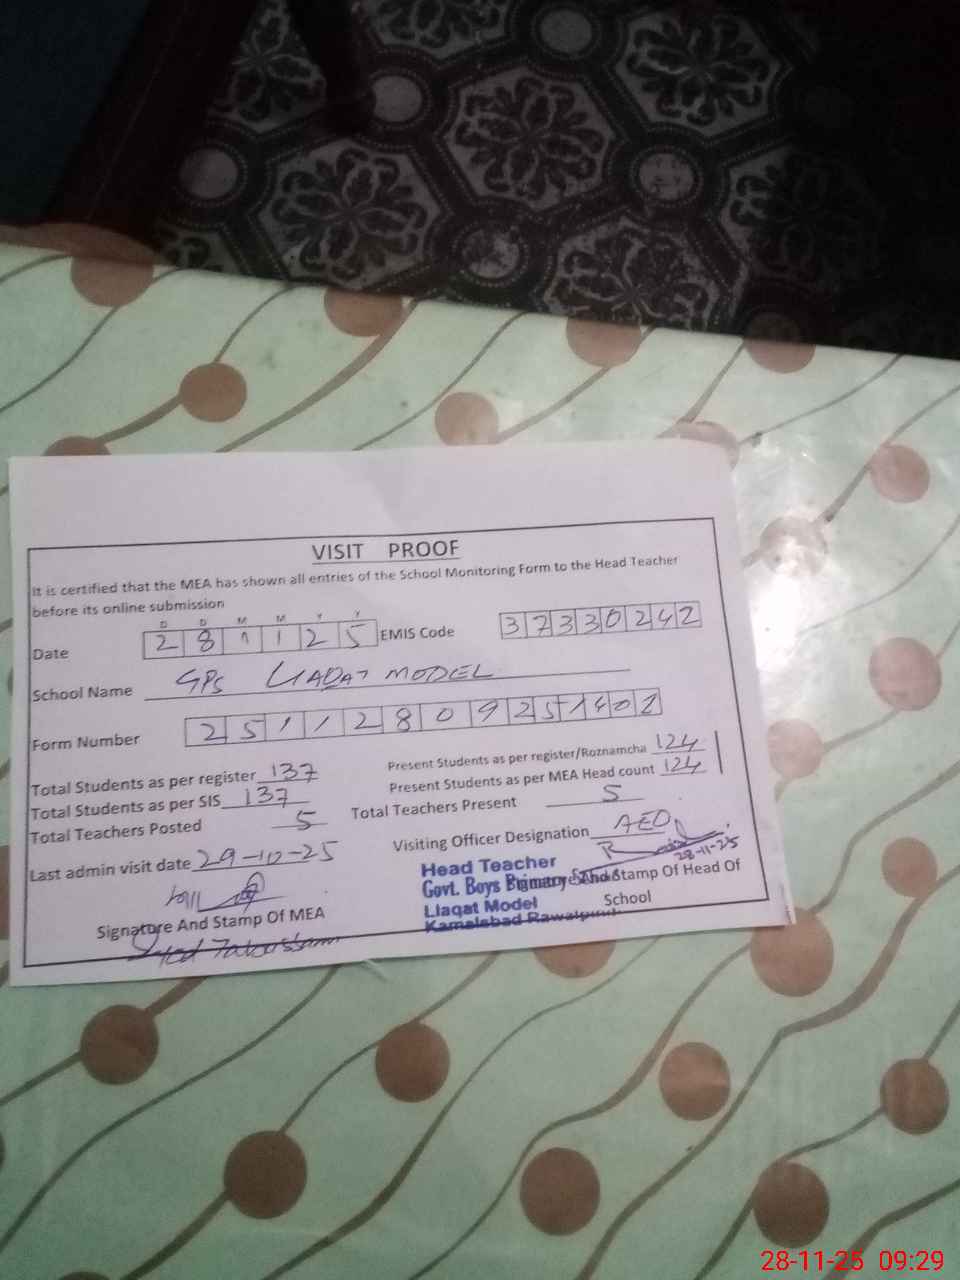 VISIT PROOF
It is certified that the MEA has shown all entries of the School Monitoring Form to the Head Teacher
before its online submission
D D M M Y Y
Date 2 8 1 1 2 5 EMIS Code 3 7 3 3 0 2 4 2
School Name GPS LIAQAT MODEL
Form Number 2 5 1 1 2 8 0 9 2 5 1 4 0 1
Total Students as per register 137 Present Students as per register/Roznamcha 124
Total Students as per SIS 137 Present Students as per MEA Head count 124
Total Teachers Posted 5 Total Teachers Present 5
Last admin visit date 29-10-25 Visiting Officer Designation AEO
28-11-25
Head Teacher
Govt. Boys Primary School
Signature And Stamp Of Head Of
School
Liaqat Model
Kamalabad Rawalpindi
Signature And Stamp Of MEA
28-11-25 09:29